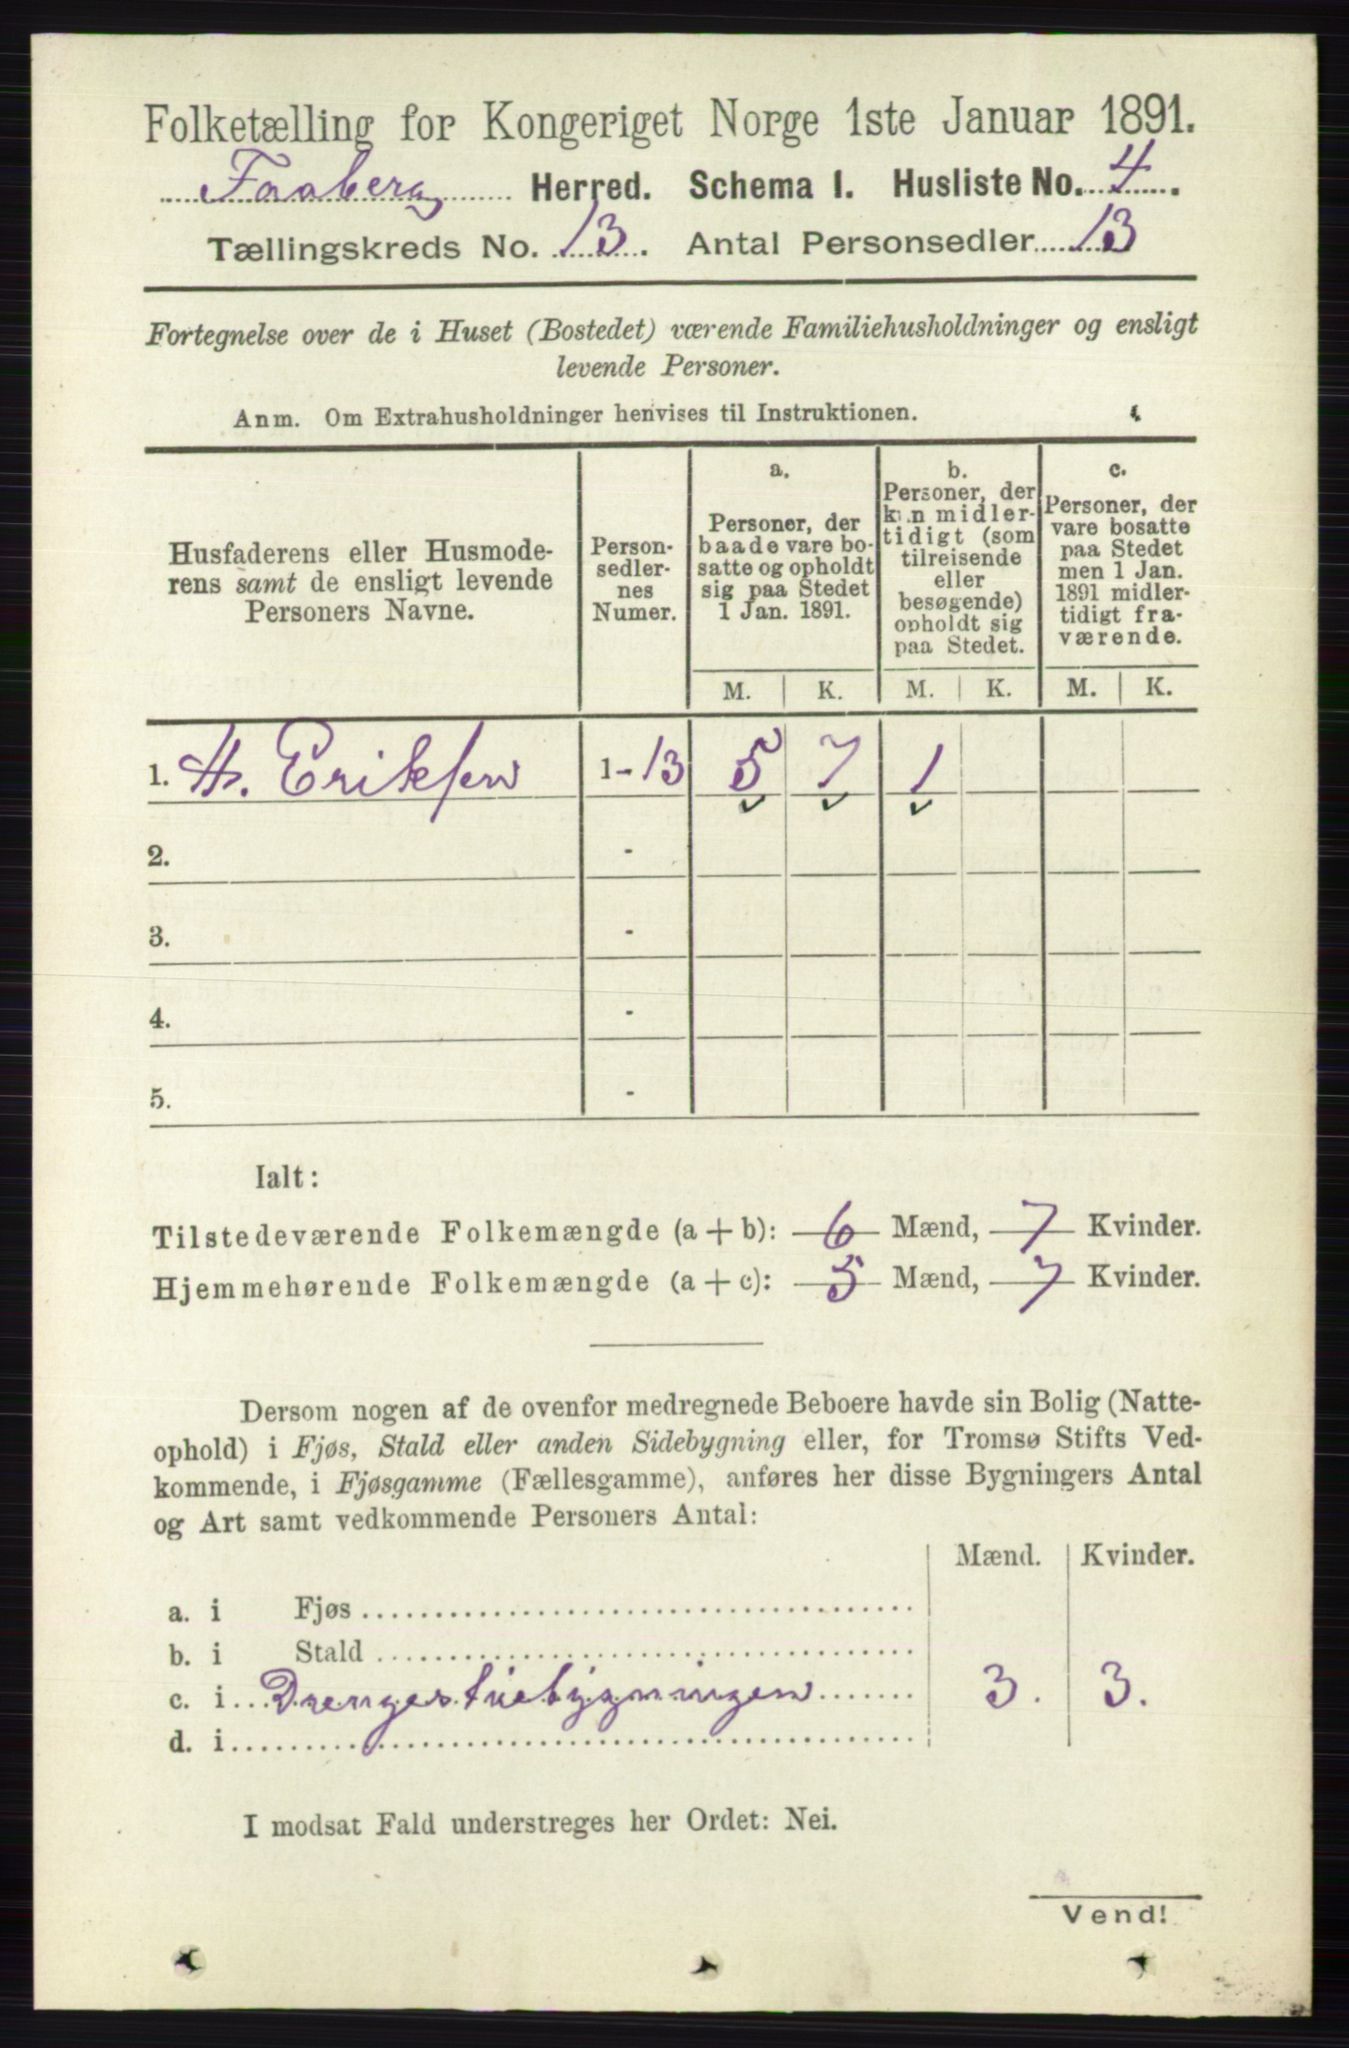 Folketælling for Kongeriget Norge 1ste Januar 1891.
Faaberg Herred. Schema I. Husliste No. 4.
Tællingskreds No. 13. Antal Personsedler 13
Fortegnelse over de i Huset (Bostedet) værende Familiehusholdninger og ensligt
levende Personer.
Anm. Om Extrahusholdninger henvises til Instruktionen.
Husfaderens eller Husmode-
rens samt de ensligt levende
Personers Navne.
Person-
sedler-
nes
Numer.
a.
Personer, der
baade vare bo-
satte og opholdt
sig paa Stedet
1 Jan. 1891.
b.
Personer, der
kun midler-
tidigt (som
tilreisende
eller
besøgende)
opholdt sig
paa Stedet.
c.
Personer, der
vare bosatte
paa Stedet
men 1 Jan.
1891 midler-
tidigt fra-
værende.
M. K. M. K. M. K.
1. Eriksen 1-13 5 7 1
2. -
3. -
4. -
5. -
Ialt:
Tilstedeværende Folkemængde (a + b): 6 Mænd, 7 Kvinder.
Hjemmehørende Folkemængde (a + c): 5 Mænd, 7 Kvinder.
Dersom nogen af de ovenfor medregnede Beboere havde sin Bolig (Natte-
ophold) i Fjøs, Stald eller anden Sidebygning eller, for Tromsø Stifts Ved-
kommende, i Fjøsgamme (Fællesgamme), anføres her disse Bygningers Antal
og Art samt vedkommende Personers Antal:
Mænd. Kvinder.
a. i Fjøs
b. i Stald
c. i Drengestuebygningen 3. 3.
d. i
I modsat Fald understreges her Ordet: Nei.
Vend!